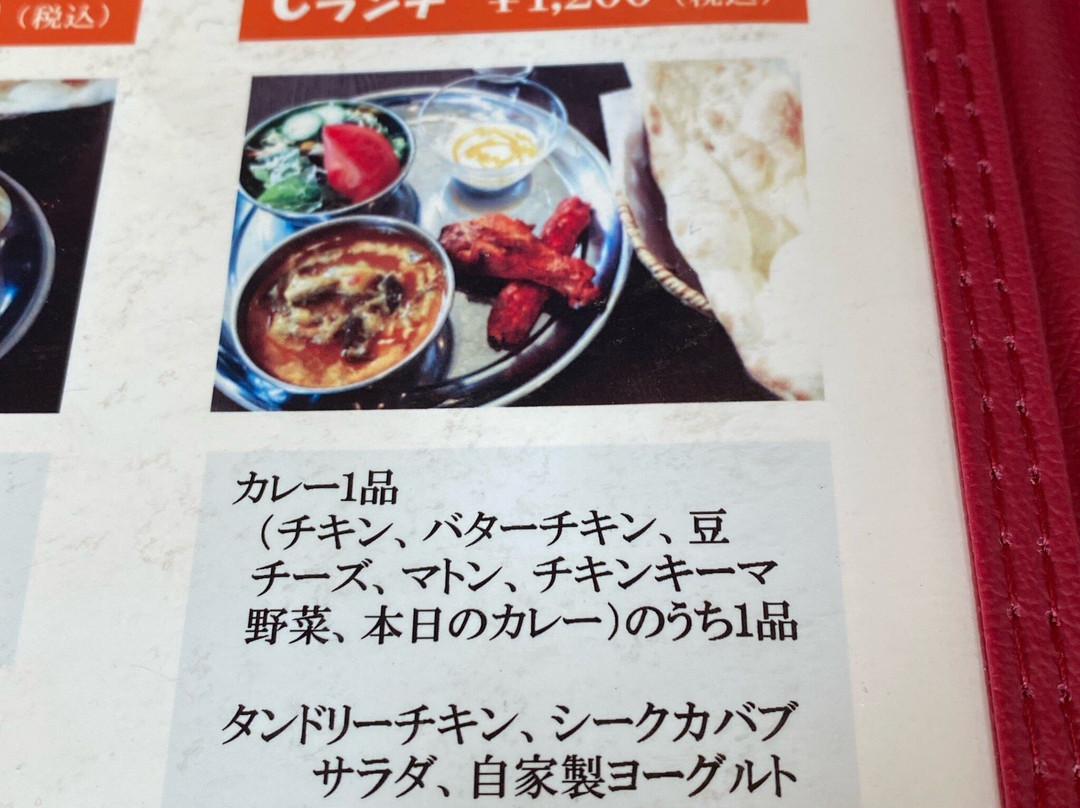 （税込）
ランチ ¥1,200（税込）
カレー1品
（チキン、バターチキン、豆
チーズ、マトン、チキンキーマ
野菜、本日のカレー）のうち1品
タンドリーチキン、シークカバブ
サラダ、自家製ヨーグルト